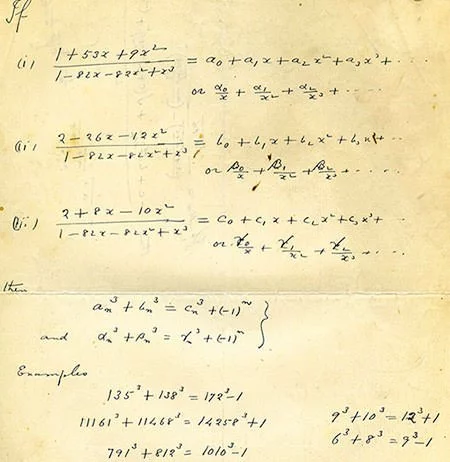 If
(i) (1 + 53x + 9x²)/(1 − 82x − 82x² + x³) = a₀ + a₁x + a₂x² + a₃x³ + ....
or α₀/x + α₁/x² + α₂/x³ + .....
(ii) (2 − 26x − 12x²)/(1 − 82x − 82x² + x³) = b₀ + b₁x + b₂x² + b₃x³ + ...
or β₀/x + β₁/x² + β₂/x³ + .....
(iii) (2 + 8x − 10x²)/(1 − 82x − 82x² + x³) = c₀ + c₁x + c₂x² + c₃x³ + ...
or γ₀/x + γ₁/x² + γ₂/x³ + ....
then
aₙ³ + bₙ³ = cₙ³ + (−1)ⁿ
and αₙ³ + βₙ³ = γₙ³ + (−1)ⁿ }
Examples
135³ + 138³ = 172³ − 1
11161³ + 11468³ = 14258³ + 1
791³ + 812³ = 1010³ − 1
9³ + 10³ = 12³ + 1
6³ + 8³ = 9³ − 1